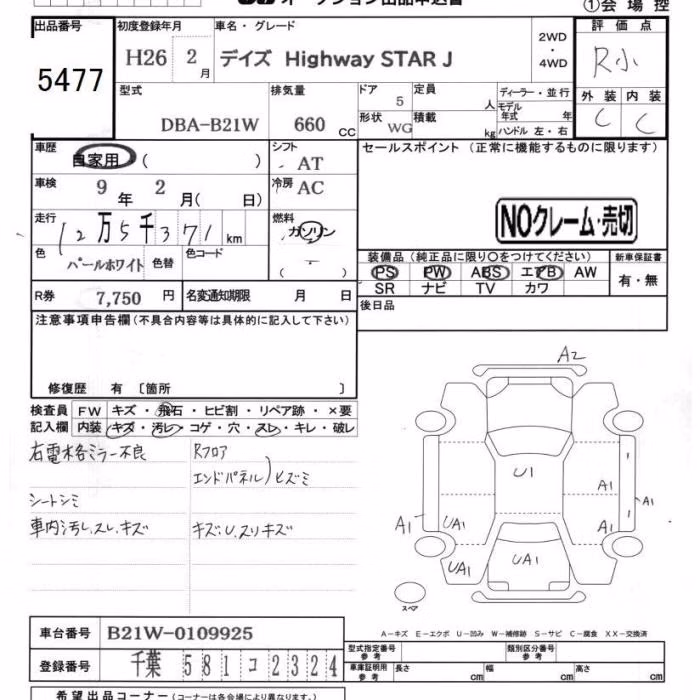 オークション出品申込書
①会場控
出品番号 5477
初度登録年月 H26 2月
車名・グレード デイズ Highway STAR J
2WD・4WD
評価点 R小
外装 C 内装 C
型式 DBA-B21W
排気量 660 cc
ドア 5
定員 人
形状 WG
積載 kg
ディーラー・並行
モデル年式 年
ハンドル 左・右
車歴 自家用 ( )
シフト AT
車検 9年 2月( 日)
冷房 AC
走行 12万5千371 km
燃料 ガソリン
( )
色 パールホワイト 色替 色コード
R券 7,750 円 名変通知期限 月 日
セールスポイント (正常に機能するものに限ります)
NOクレーム・売切
装備品 (純正品に限り○をつけてください) 新車保証書
PS PW ABS エアB AW 有・無
SR ナビ TV カワ
後日品
注意事項申告欄 (不具合内容等は具体的に記入して下さい)
修復歴 有 〔箇所 〕
検査員記入欄
FW キズ・飛石・ヒビ割・リペア跡・×要
内装 キズ・汚レ・コゲ・穴・スレ・キレ・破レ
右電格ミラー不良 Rフロア
エンドパネル)ヒズミ
シートシミ
車内汚し、スレ、キズ キズ:U.スリキズ
A2
U1
A1
A1
A1
A1
UA1
UA1
UA1
スペア
A-キズ E-エクボ U-凹み W-補修跡 S-サビ C-腐食 XX-交換済
車台番号 B21W-0109925
登録番号 千葉 581 コ 2324
型式指定番号 参考 類別区分番号 参考
車庫証明用 参考 長さ cm 幅 cm 高さ cm
希望出品コーナー (コーナーは各会場により異なります)